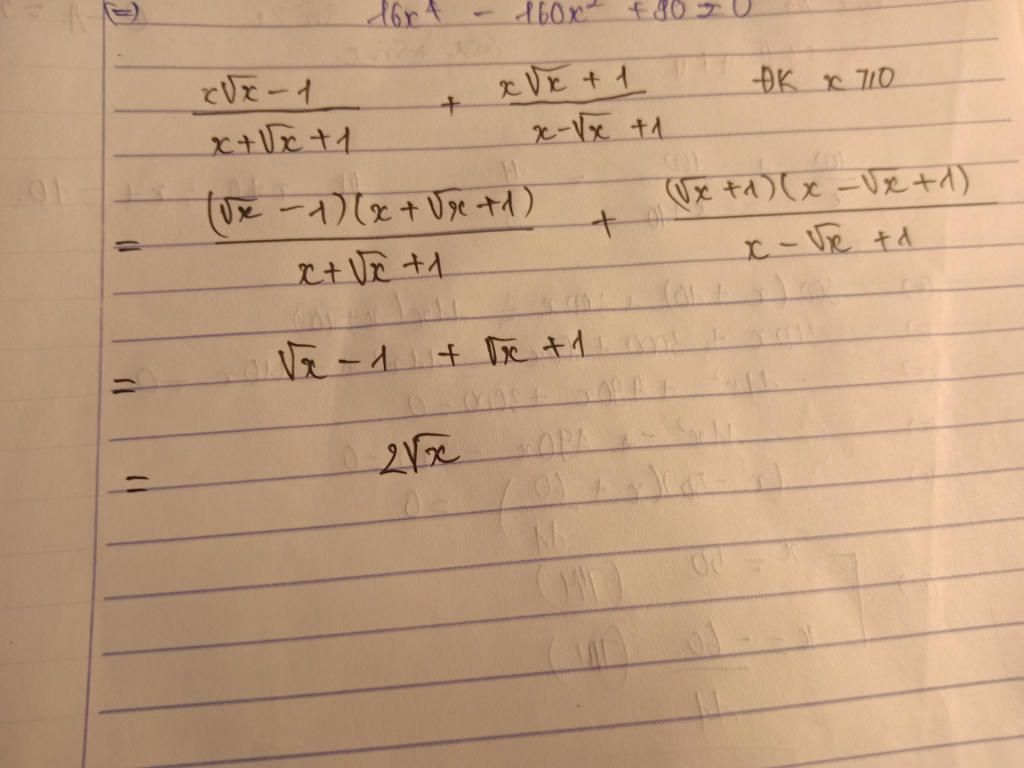 (=) 16x⁴ - 160x² + 80 = 0
(x√x - 1)/(x + √x + 1) + (x√x + 1)/(x - √x + 1) ĐK x ≥ 0
= ((√x - 1)(x + √x + 1))/(x + √x + 1) + ((√x + 1)(x - √x + 1))/(x - √x + 1)
= √x - 1 + √x + 1
= 2√x